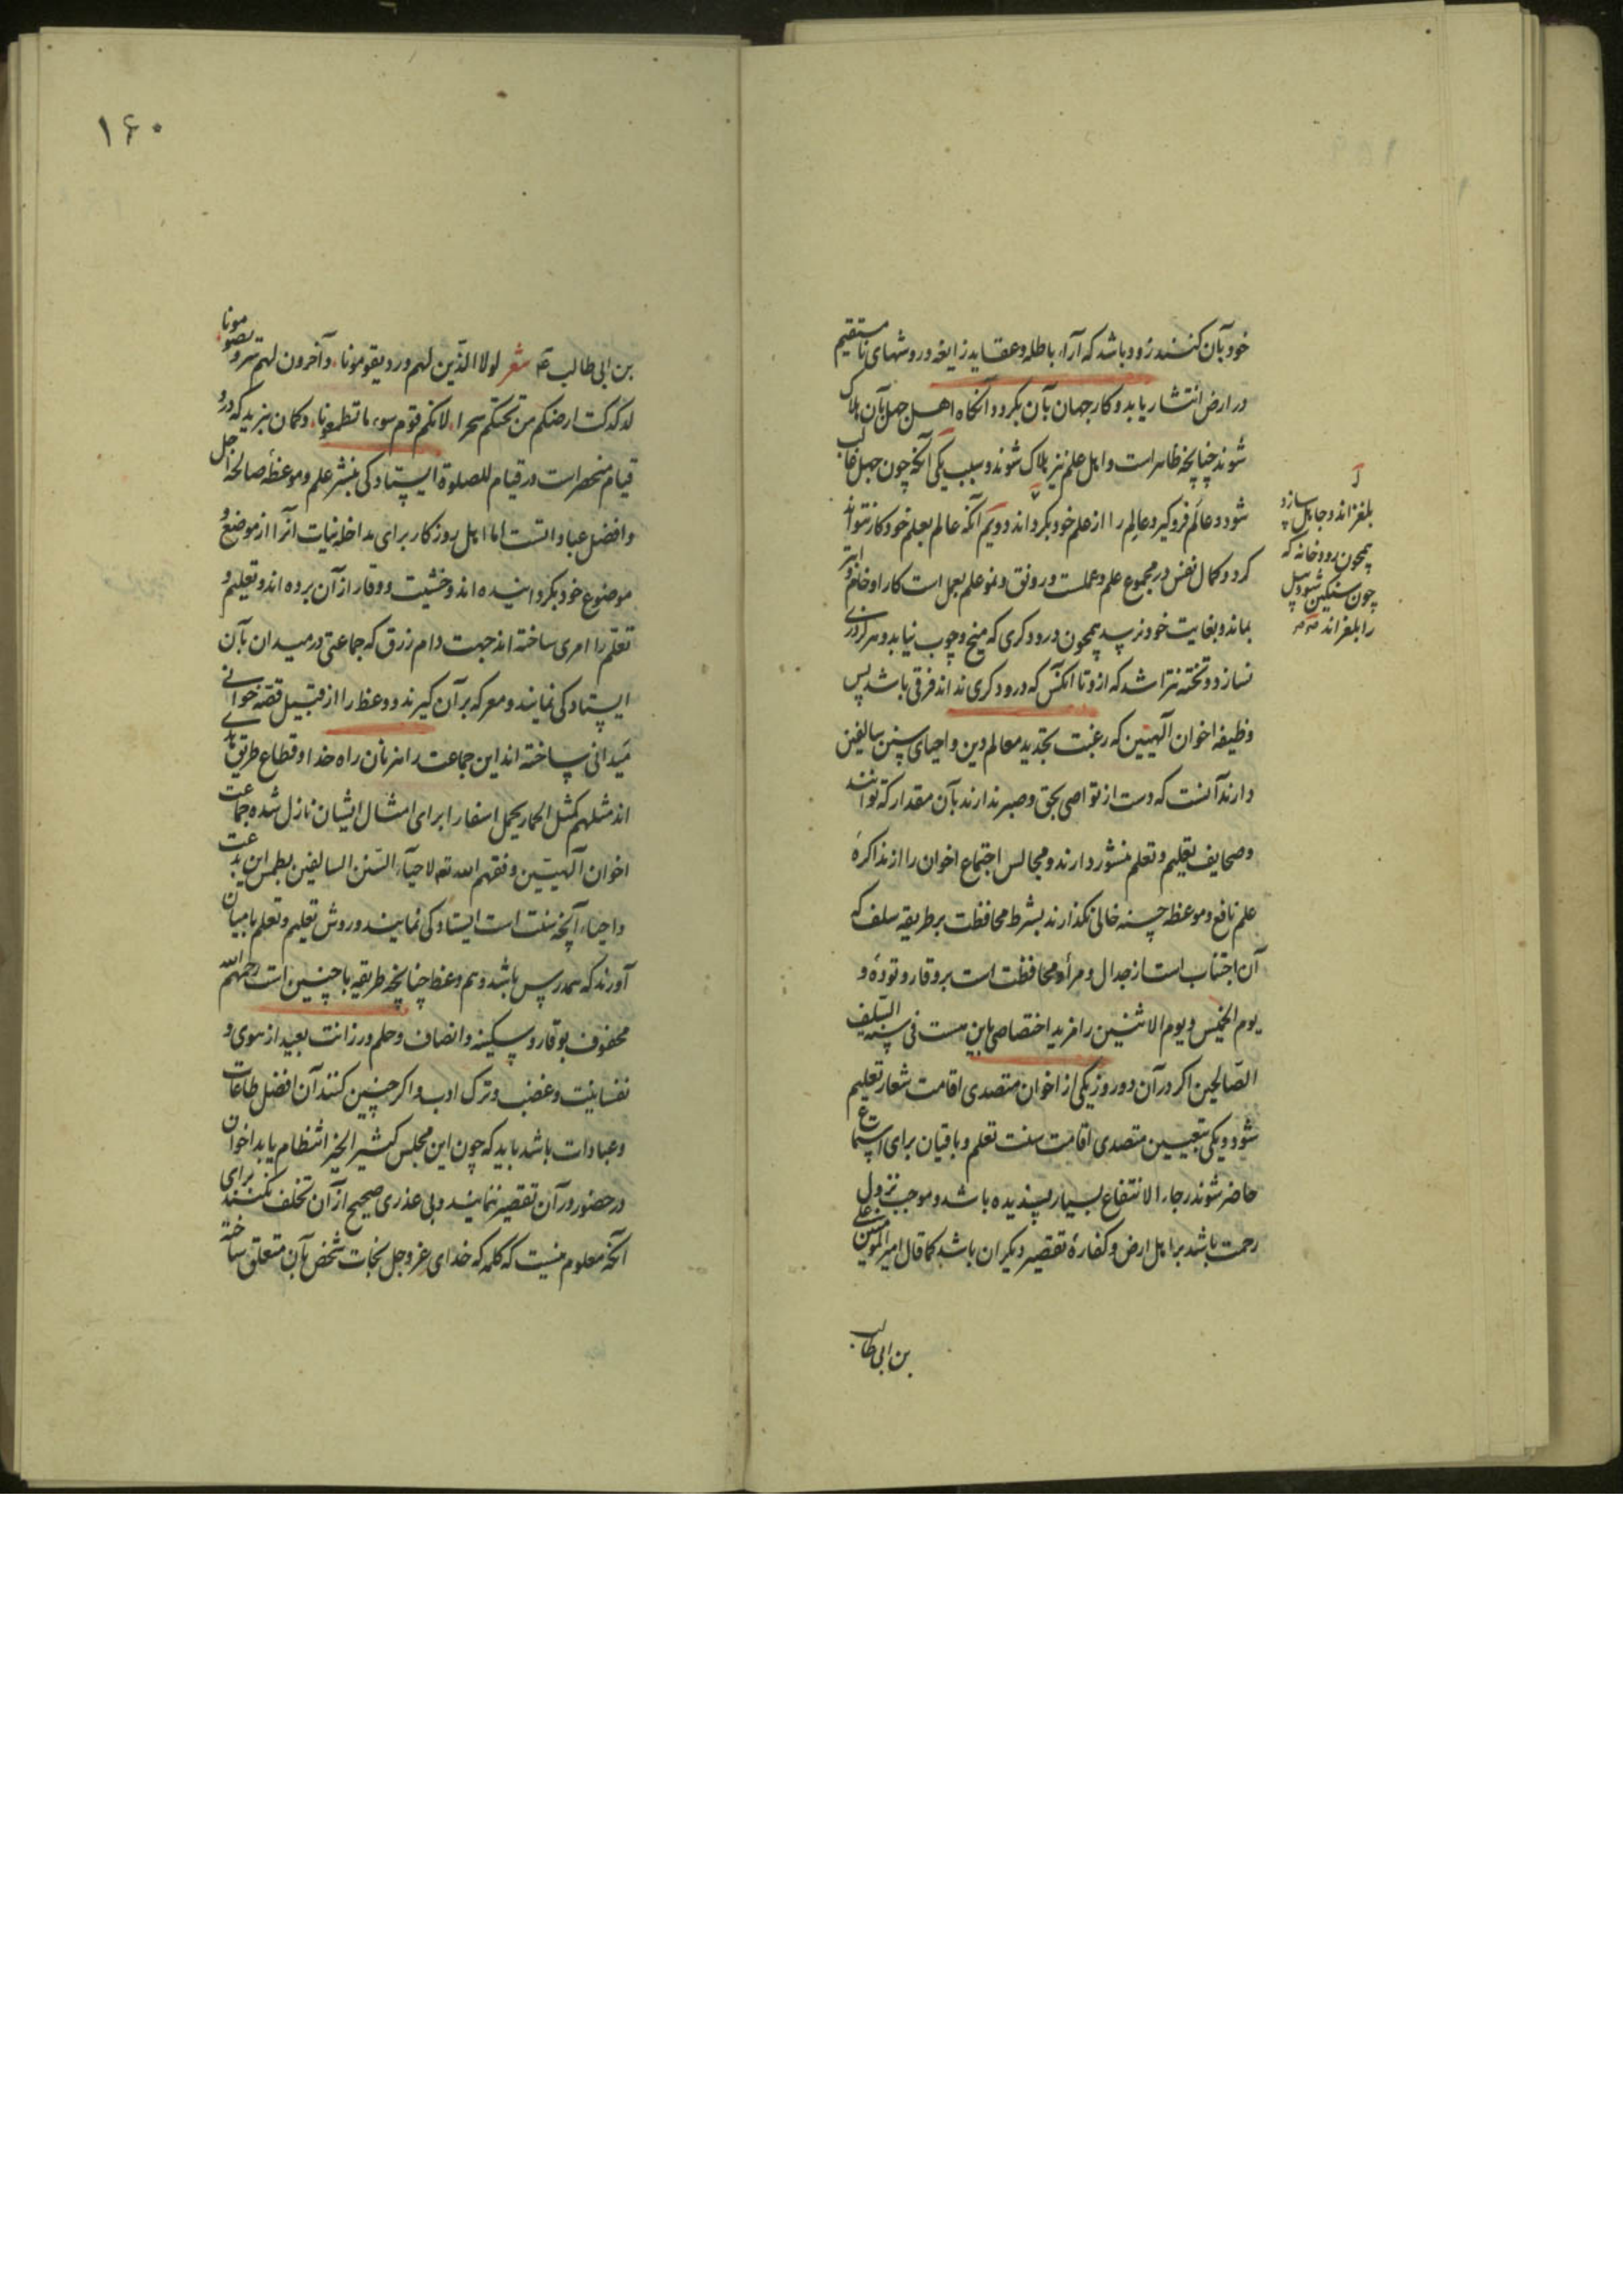 خود بآن کنند زود باشد که آراء باطله و عقاید زایغه و روشهای نا مستقیم
در ارض انتشار یابد و کار جهان بآن بگردد و آنگاه اهل جهل بآن هلاک
شوند چنانچه ظاهر است و اهل علم نیز هلاک شوند و سبب یکی آنکه چون جهل غالب
شود و عالم فرو گیرد عالم را از علم خود بگرداند و دویم آنکه عالم بعلم خود کار نتواند
کرد و کمال نفس در مجموع علم و عملست و رونق و نمو علم بعمل است کار او خام و ابتر
بماند و بغایت خود نرسد همچون درودگری که میخ و چوب نیابد و هرگز دری
نسازد و تخته نتراشد که ازو تا آنکس که درودگری نداند فرقی باشد پس
وظیفه اخوان آلهیین که رغبت بتجدید معالم دین و احیای سنن سالفین
دارند آنست که دست از تواصی بحق و صبر ندارند بآن مقدار که توانند
و صحایف تعلیم و تعلم منشور دارند و مجالس اجتماع اخوان را از مذاکرهٔ
علم نافع و موعظه حسنه خالی نگذارند بشرط محافظت بر طریقه سلف که
آن اجتناب است از جدال و مراء و محافظت است بر وقار و تودهٔ و
یوم الخمیس و یوم الاثنین را مزید اختصاصی باین هست فی سنه السلف
الصالحین اگر در آن دو روز یکی از اخوان متصدی اقامت شعار تعلیم
شود و یکی بتعیین متصدی اقامت سنت تعلم و باقیان برای استماع
حاضر شوند رجاء الانتفاع بسیار پسندیده باشد و موجب نزول
رحمت باشد بر اهل ارض و کفارهٔ تقصیر دیگران باشد کما قال امیر المؤمنین علی
بن ابی طالب
بلغزاند و جاهل سازد
همچون رودخانه که
چون سنگین شود پل
را بلغزاند
۱۶۰
بن ابی طالب شعر لولا الذین لهم ورد یقومونا وآخرون لهم سرد یصومونا
لدکدکت ارضکم من تحتکم سحرا لانکم قوم سوء ما تطیعونا و گمان نبرید که ورد
قیام منحصر است در قیام للصلوة ایستادگی بنشر علم و موعظهٔ صالحه اجل
و افضل عباداتست اما اهل روزگار برای مداخله نیات آنرا از موضع و
موضوع خود بگردانیده اند و خشیت و وقار از آن برده اند و تعلیم و
تعلم را امری ساخته اند جهت دام رزق که جماعتی در میدان بآن
ایستادگی نمایند و معرکه بر آن گیرند و وعظ را از قبیل قصه خوانی
میدانی ساخته اند این جماعت راهزنان راه خدا و قطاع طریق
اند مثلهم کمثل الحمار یحمل اسفارا برای امثال ایشان نازل شده جماعت
اخوان آلهیین وفقهم الله تع لاحیاء السنن السالفین بطمس این بدعت
و احیاء آنچه سنت است ایستادگی نمایند و روش تعلیم و تعلم با میان
آورند که هم درس باشد و هم وعظ چنانچه طریقه ما چنین است رحمهم الله
محفوف بوقار و سکینه و انصاف و حلم و رزانت بعید از هوی و
نفسانیت و غضب و ترک ادب و اگر چنین کنند آن افضل طاعات
و عبادات باشد باید که چون این مجلس کثیر الخیر انتظام یابد اخوان
در حضور در آن تقصیر ننمایند و بی عذری صحیح از آن تخلف نکنند برای
آنکه معلوم نیست که کلمه که خدای عزوجل نجات شخص بآن متعلق ساخته